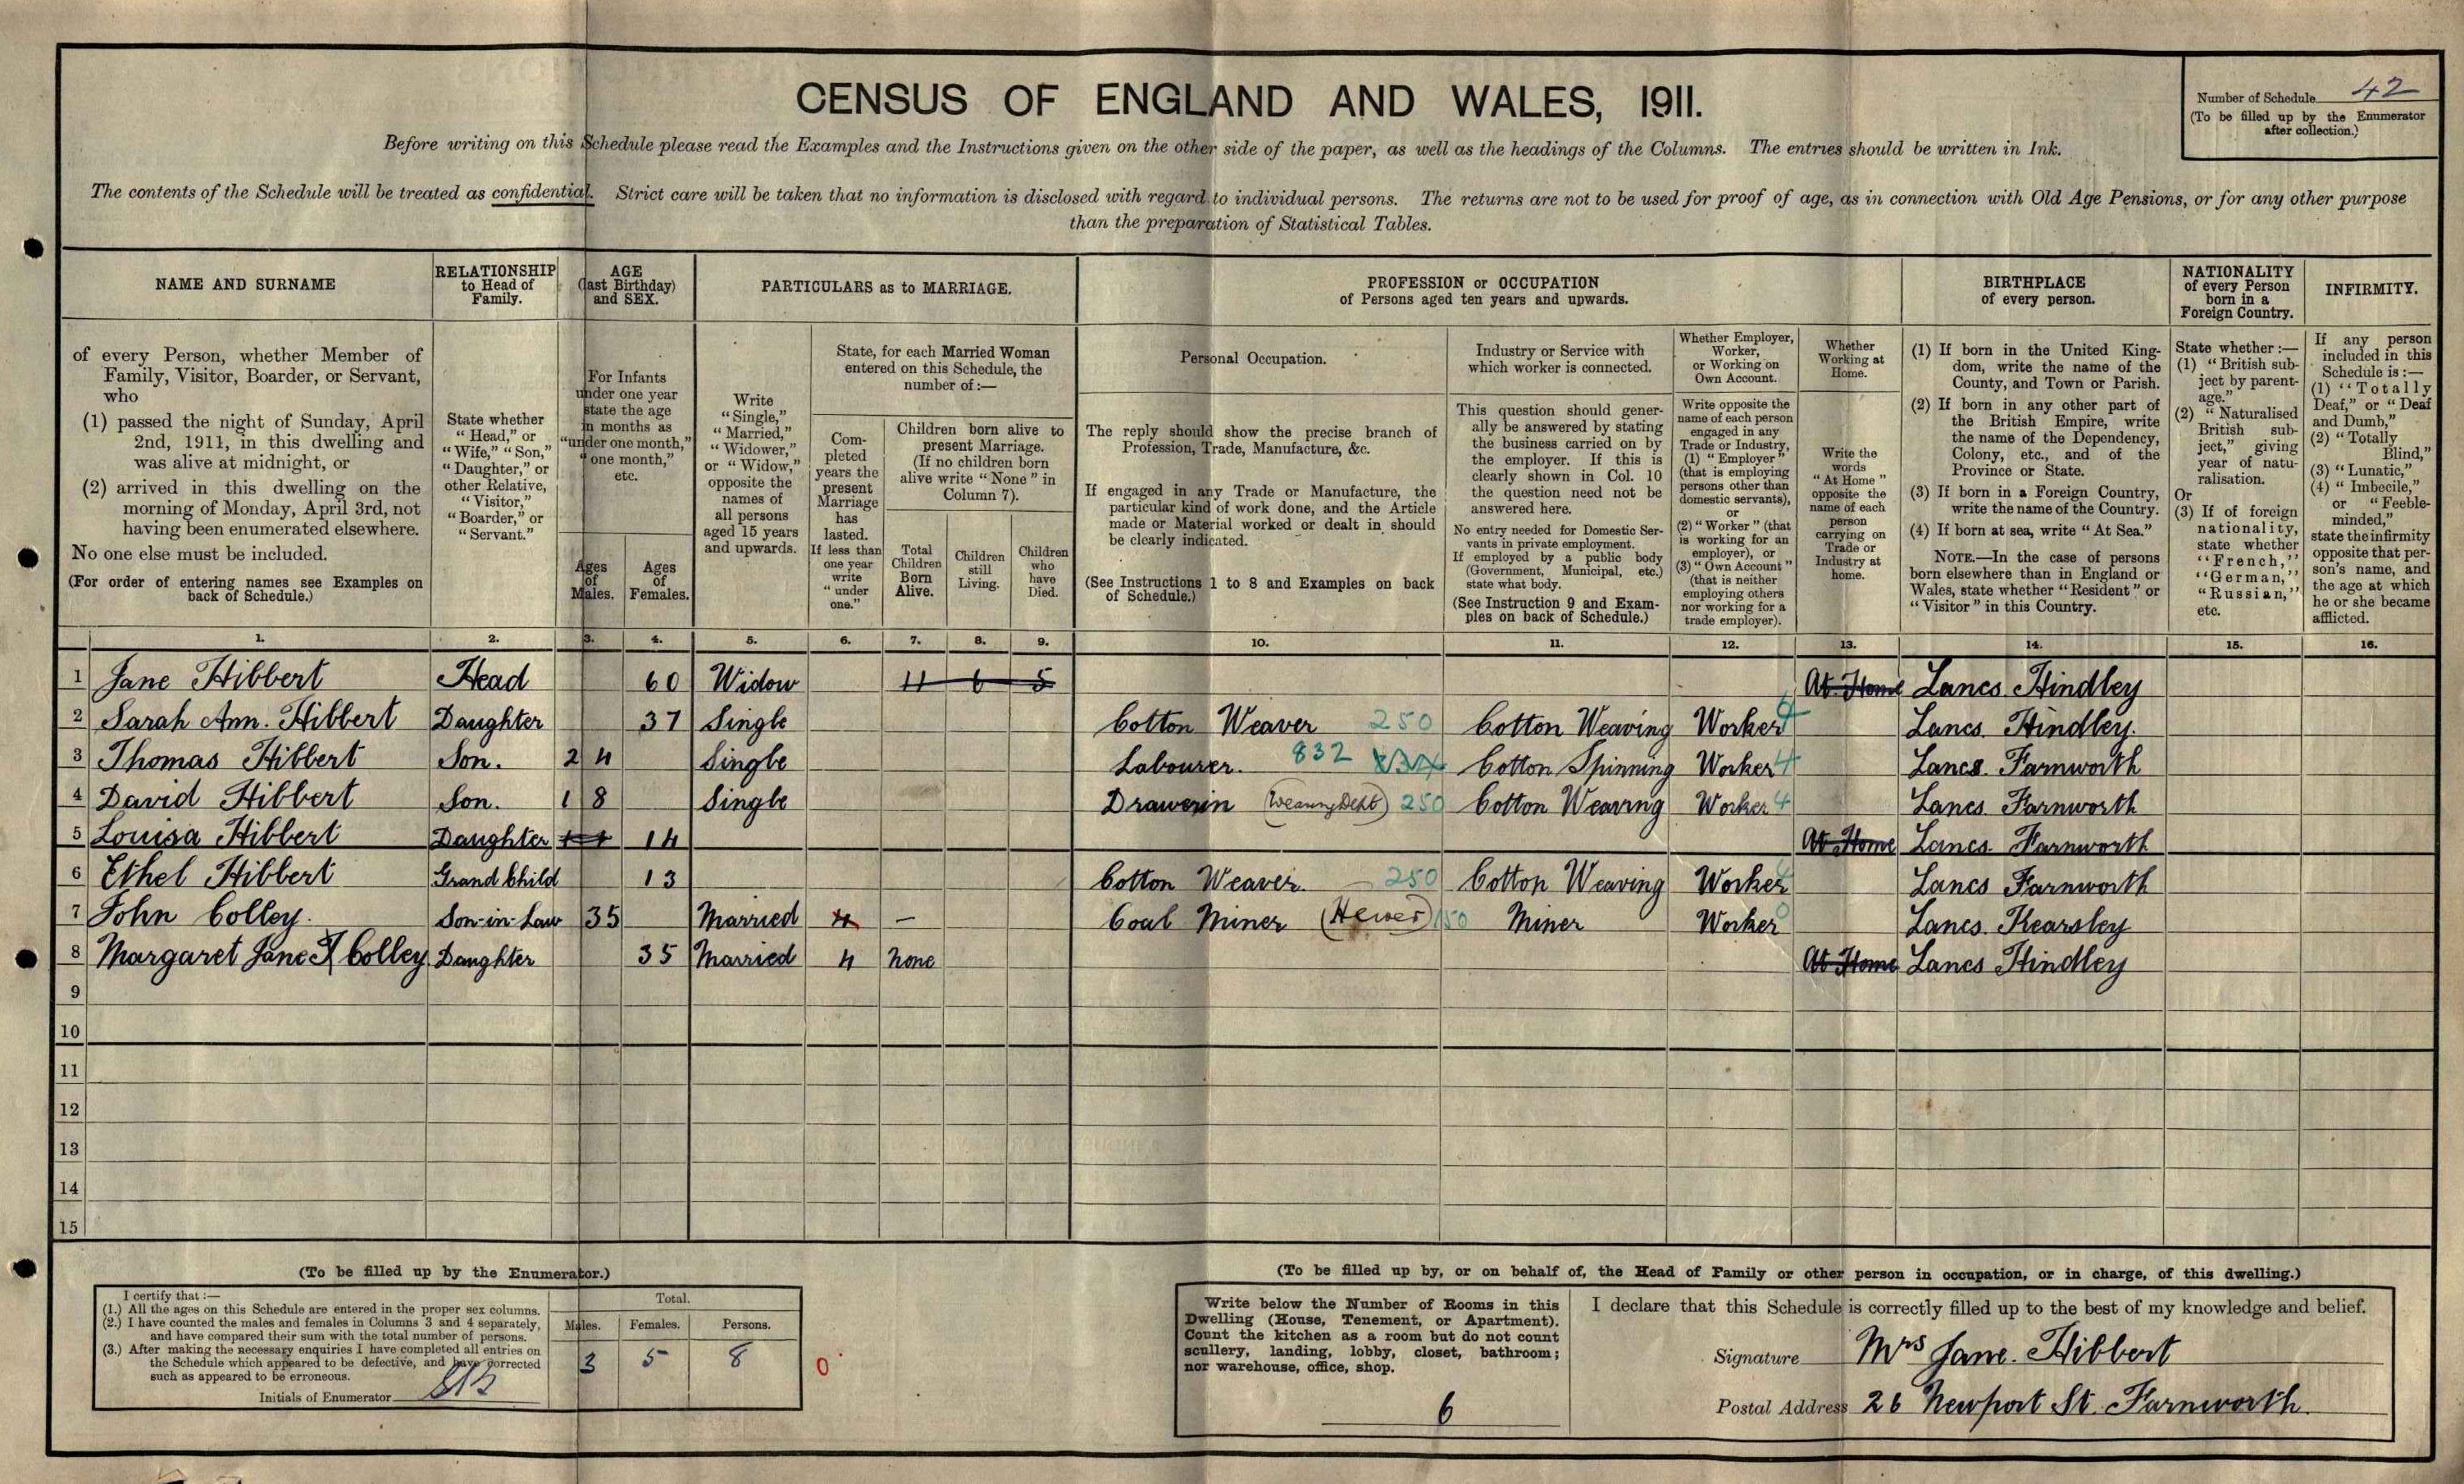 CENSUS OF ENGLAND AND WALES, 1911.
Number of Schedule 42
(To be filled up by the Enumerator
after collection.)
Before writing on this Schedule please read the Examples and the Instructions given on the other side of the paper, as well as the headings of the Columns. The entries should be written in Ink.
The contents of the Schedule will be treated as confidential. Strict care will be taken that no information is disclosed with regard to individual persons. The returns are not to be used for proof of age, as in connection with Old Age Pensions, or for any other purpose
than the preparation of Statistical Tables.
NAME AND SURNAME
of every Person, whether Member of
Family, Visitor, Boarder, or Servant,
who
(1) passed the night of Sunday, April
2nd, 1911, in this dwelling and
was alive at midnight, or
(2) arrived in this dwelling on the
morning of Monday, April 3rd, not
having been enumerated elsewhere.
No one else must be included.
(For order of entering names see Examples on
back of Schedule.)
RELATIONSHIP
to Head of
Family.
State whether
"Head," or
"Wife," "Son,"
"Daughter," or
other Relative,
"Visitor,"
"Boarder," or
"Servant."
AGE
(last Birthday)
and SEX.
For Infants
under one year
state the age
in months as
"under one month,"
"one month,"
etc.
Ages
of
Males.
Ages
of
Females.
PARTICULARS as to MARRIAGE.
Write
"Single,"
"Married,"
"Widower,"
or "Widow,"
opposite the
names of
all persons
aged 15 years
and upwards.
State, for each Married Woman
entered on this Schedule, the
number of:—
Com-
pleted
years the
present
Marriage
has
lasted.
If less than
one year
write
"under
one."
Children born alive to
present Marriage.
(If no children born
alive write "None" in
Column 7).
Total
Children
Born
Alive.
Children
still
Living.
Children
who
have
Died.
PROFESSION or OCCUPATION
of Persons aged ten years and upwards.
Personal Occupation.
The reply should show the precise branch of
Profession, Trade, Manufacture, &c.
If engaged in any Trade or Manufacture, the
particular kind of work done, and the Article
made or Material worked or dealt in should
be clearly indicated.
(See Instructions 1 to 8 and Examples on back
of Schedule.)
Industry or Service with
which worker is connected.
This question should gener-
ally be answered by stating
the business carried on by
the employer. If this is
clearly shown in Col. 10
the question need not be
answered here.
No entry needed for Domestic Ser-
vants in private employment.
If employed by a public body
(Government, Municipal, etc.)
state what body.
(See Instruction 9 and Exam-
ples on back of Schedule.)
Whether Employer,
Worker,
or Working on
Own Account.
Write opposite the
name of each person
engaged in any
Trade or Industry,
(1) "Employer"
(that is employing
persons other than
domestic servants),
or
(2) "Worker" (that
is working for an
employer), or
(3) "Own Account"
(that is neither
employing others
nor working for a
trade employer).
Whether
Working at
Home.
Write the
words
"At Home"
opposite the
name of each
person
carrying on
Trade or
Industry at
home.
BIRTHPLACE
of every person.
(1) If born in the United King-
dom, write the name of the
County, and Town or Parish.
(2) If born in any other part of
the British Empire, write
the name of the Dependency,
Colony, etc., and of the
Province or State.
(3) If born in a Foreign Country,
write the name of the Country.
(4) If born at sea, write "At Sea."
NOTE.—In the case of persons
born elsewhere than in England or
Wales, state whether "Resident" or
"Visitor" in this Country.
NATIONALITY
of every Person
born in a
Foreign Country.
State whether:—
(1) "British sub-
ject by parent-
age."
(2) "Naturalised
British sub-
ject," giving
year of natu-
ralisation.
Or
(3) If of foreign
nationality,
state whether
"French,"
"German,"
"Russian,"
etc.
INFIRMITY.
If any person
included in this
Schedule is:—
(1) "Totally
Deaf," or "Deaf
and Dumb,"
(2) "Totally
Blind,"
(3) "Lunatic,"
(4) "Imbecile,"
or "Feeble-
minded,"
state the infirmity
opposite that per-
son's name, and
the age at which
he or she became
afflicted.
1. 2. 3. 4. 5. 6. 7. 8. 9. 10. 11. 12. 13. 14. 15. 16.
1 Jane Hibbert Head 60 Widow 11 6 5 At Home Lancs. Hindley
2 Sarah Ann. Hibbert Daughter 37 Single Cotton Weaver 250 Cotton Weaving Worker 4 Lancs. Hindley.
3 Thomas Hibbert Son. 24 Single Labourer. 832 Cotton Spinning Worker 4 Lancs. Farnworth
4 David Hibbert Son. 18 Single Drawerin (Weaving Dept) 250 Cotton Weaving Worker 4 Lancs. Farnworth
5 Louisa Hibbert Daughter 14 At Home Lancs. Farnworth
6 Ethel Hibbert Grand Child 13 Cotton Weaver. 250 Cotton Weaving Worker Lancs Farnworth
7 John Colley. Son-in-Law 35 Married 4 — Coal Miner (Hewer) 150 Miner Worker Lancs. Kearsley
8 Margaret Jane Colley Daughter 35 Married 4 None At Home Lancs Hindley
9
10
11
12
13
14
15
(To be filled up by the Enumerator.)
I certify that:—
(1.) All the ages on this Schedule are entered in the proper sex columns.
(2.) I have counted the males and females in Columns 3 and 4 separately,
and have compared their sum with the total number of persons.
(3.) After making the necessary enquiries I have completed all entries on
the Schedule which appeared to be defective, and have corrected
such as appeared to be erroneous.
Initials of Enumerator
Total.
Males. Females. Persons.
3 5 8
0
(To be filled up by, or on behalf of, the Head of Family or other person in occupation, or in charge, of this dwelling.)
Write below the Number of Rooms in this
Dwelling (House, Tenement, or Apartment).
Count the kitchen as a room but do not count
scullery, landing, lobby, closet, bathroom;
nor warehouse, office, shop.
6
I declare that this Schedule is correctly filled up to the best of my knowledge and belief.
Signature Mrs Jane. Hibbert
Postal Address 26 Newport St. Farnworth.